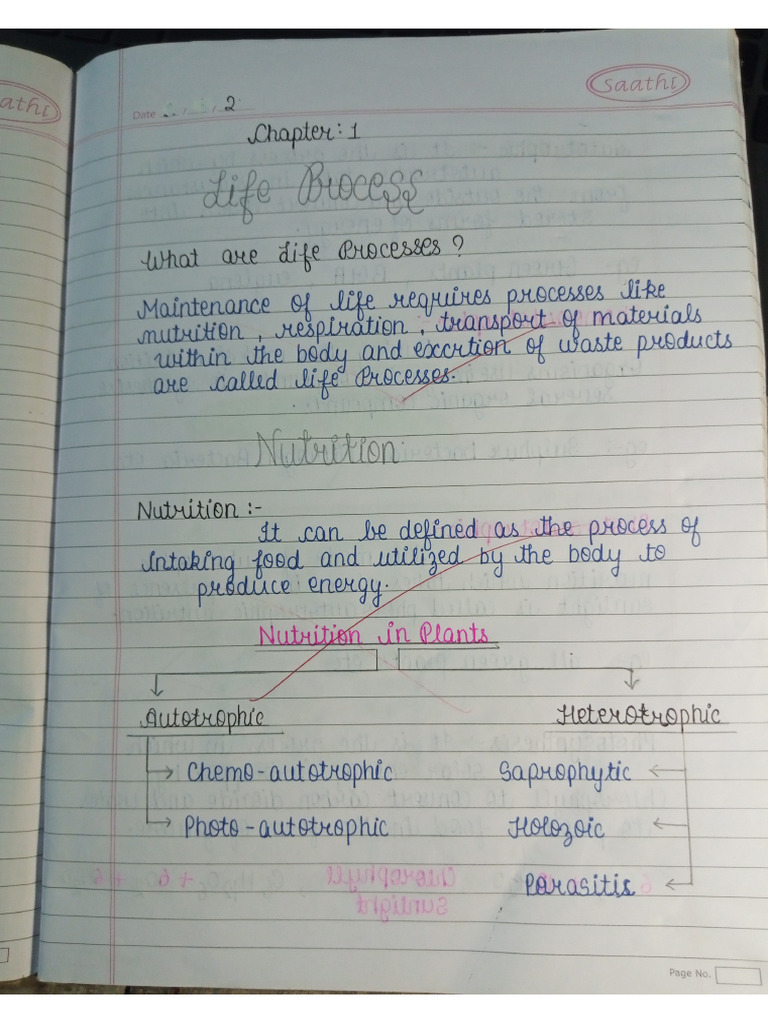 athi
Saathi
Date 2
Chapter: 1
Life Process
What are Life Processes?
Maintenance of life requires processes like
nutrition, respiration, transport of materials
within the body and excrtion of waste products
are called life Processes.
Nutrition
Nutrition :-
It can be defined as the process of
Intaking food and utilized by the body to
produce energy.
Nutrition in Plants
Autotrophic Heterotrophic
Chemo-autotrophic Saprophytic
Photo-autotrophic Holozoic
Parasitis
Page No.